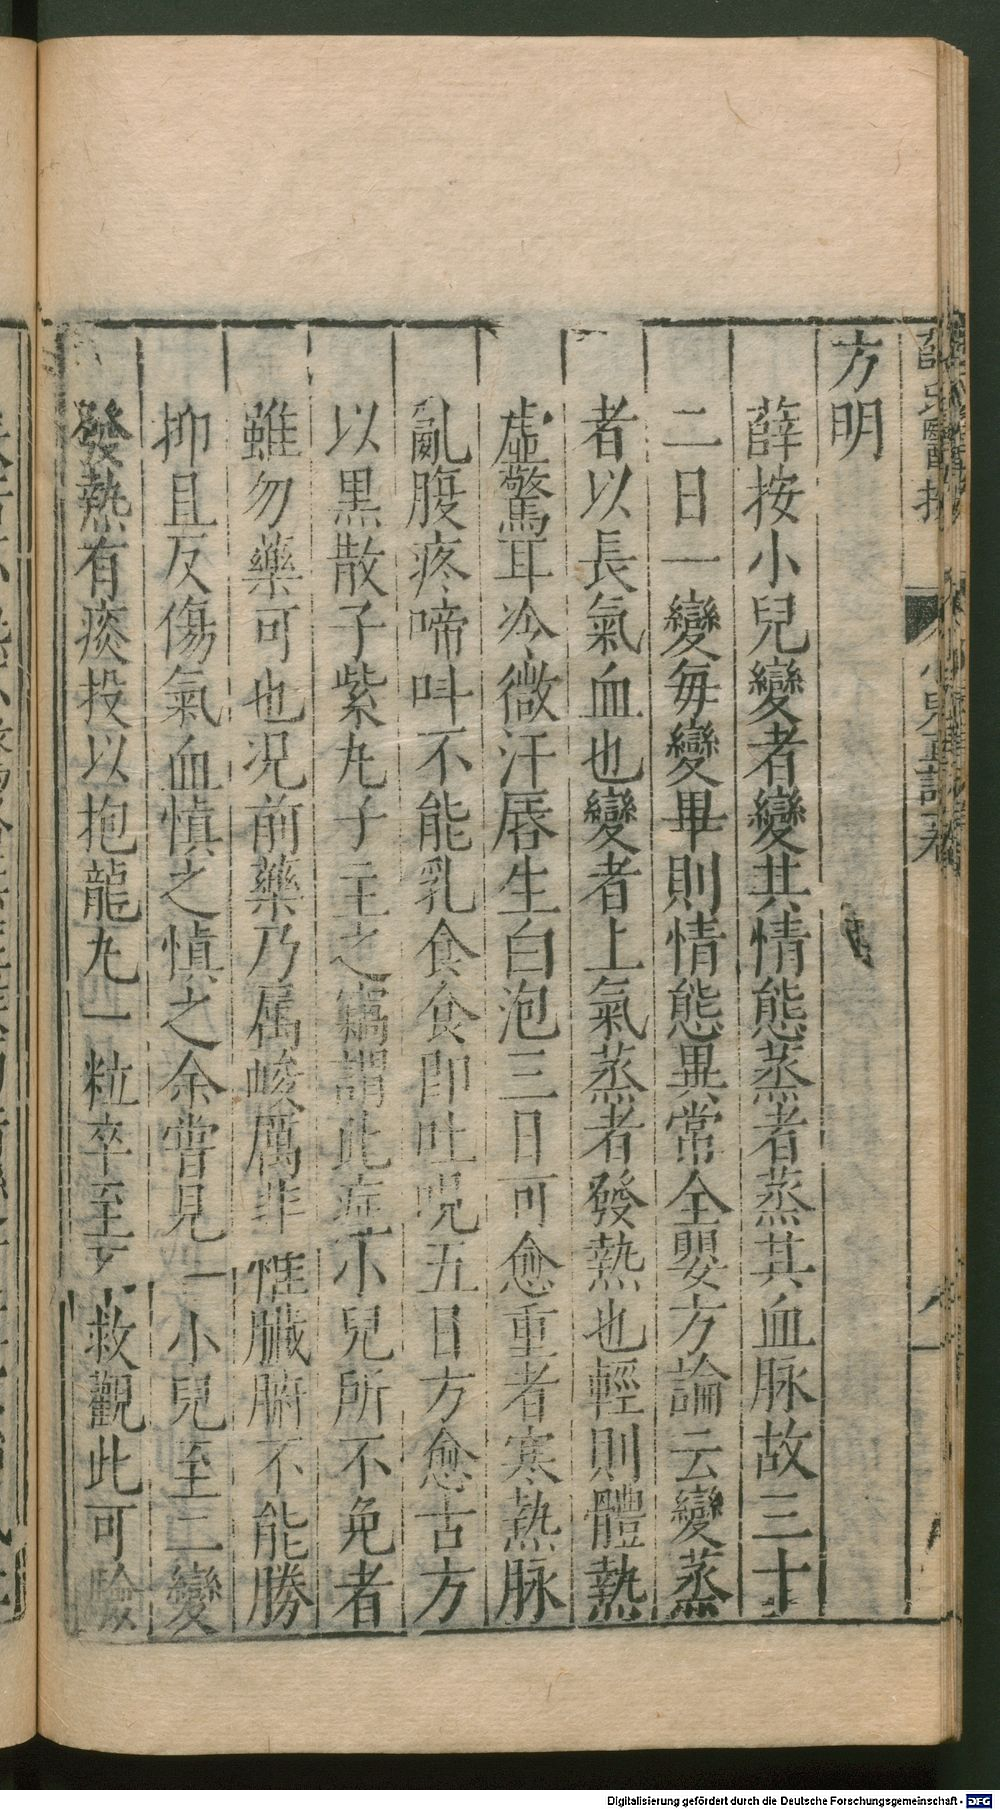 方明
薛按小兒變者變其情態蒸者蒸其血脉故三十
二日一變每變畢則情態異常全嬰方論云變蒸
者以長氣血也變者上氣蒸者發熱也輕則體熱
虛驚耳冷微汗唇生白泡三日可愈重者寒熱脉
亂腹疼啼呌不能乳食食即吐呪五日方愈古方
以黑散子紫丸子主之竊謂此症小兒所不免者
雖勿藥可也况前藥乃属峻厲非惟臟腑不能勝
抑且反傷氣血慎之慎之余嘗見一小兒至二變
發熱有痰投以抱龍丸一粒卒至不救觀此可驗
Digitalisierung gefördert durch die Deutsche Forschungsgemeinschaft - DFG